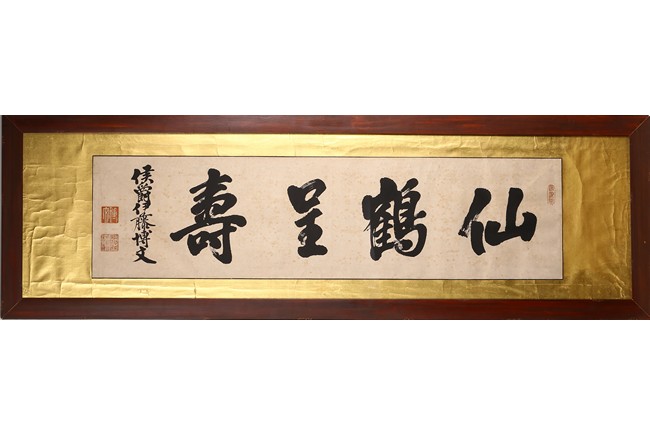 仙鶴呈壽
侯爵伊藤博文